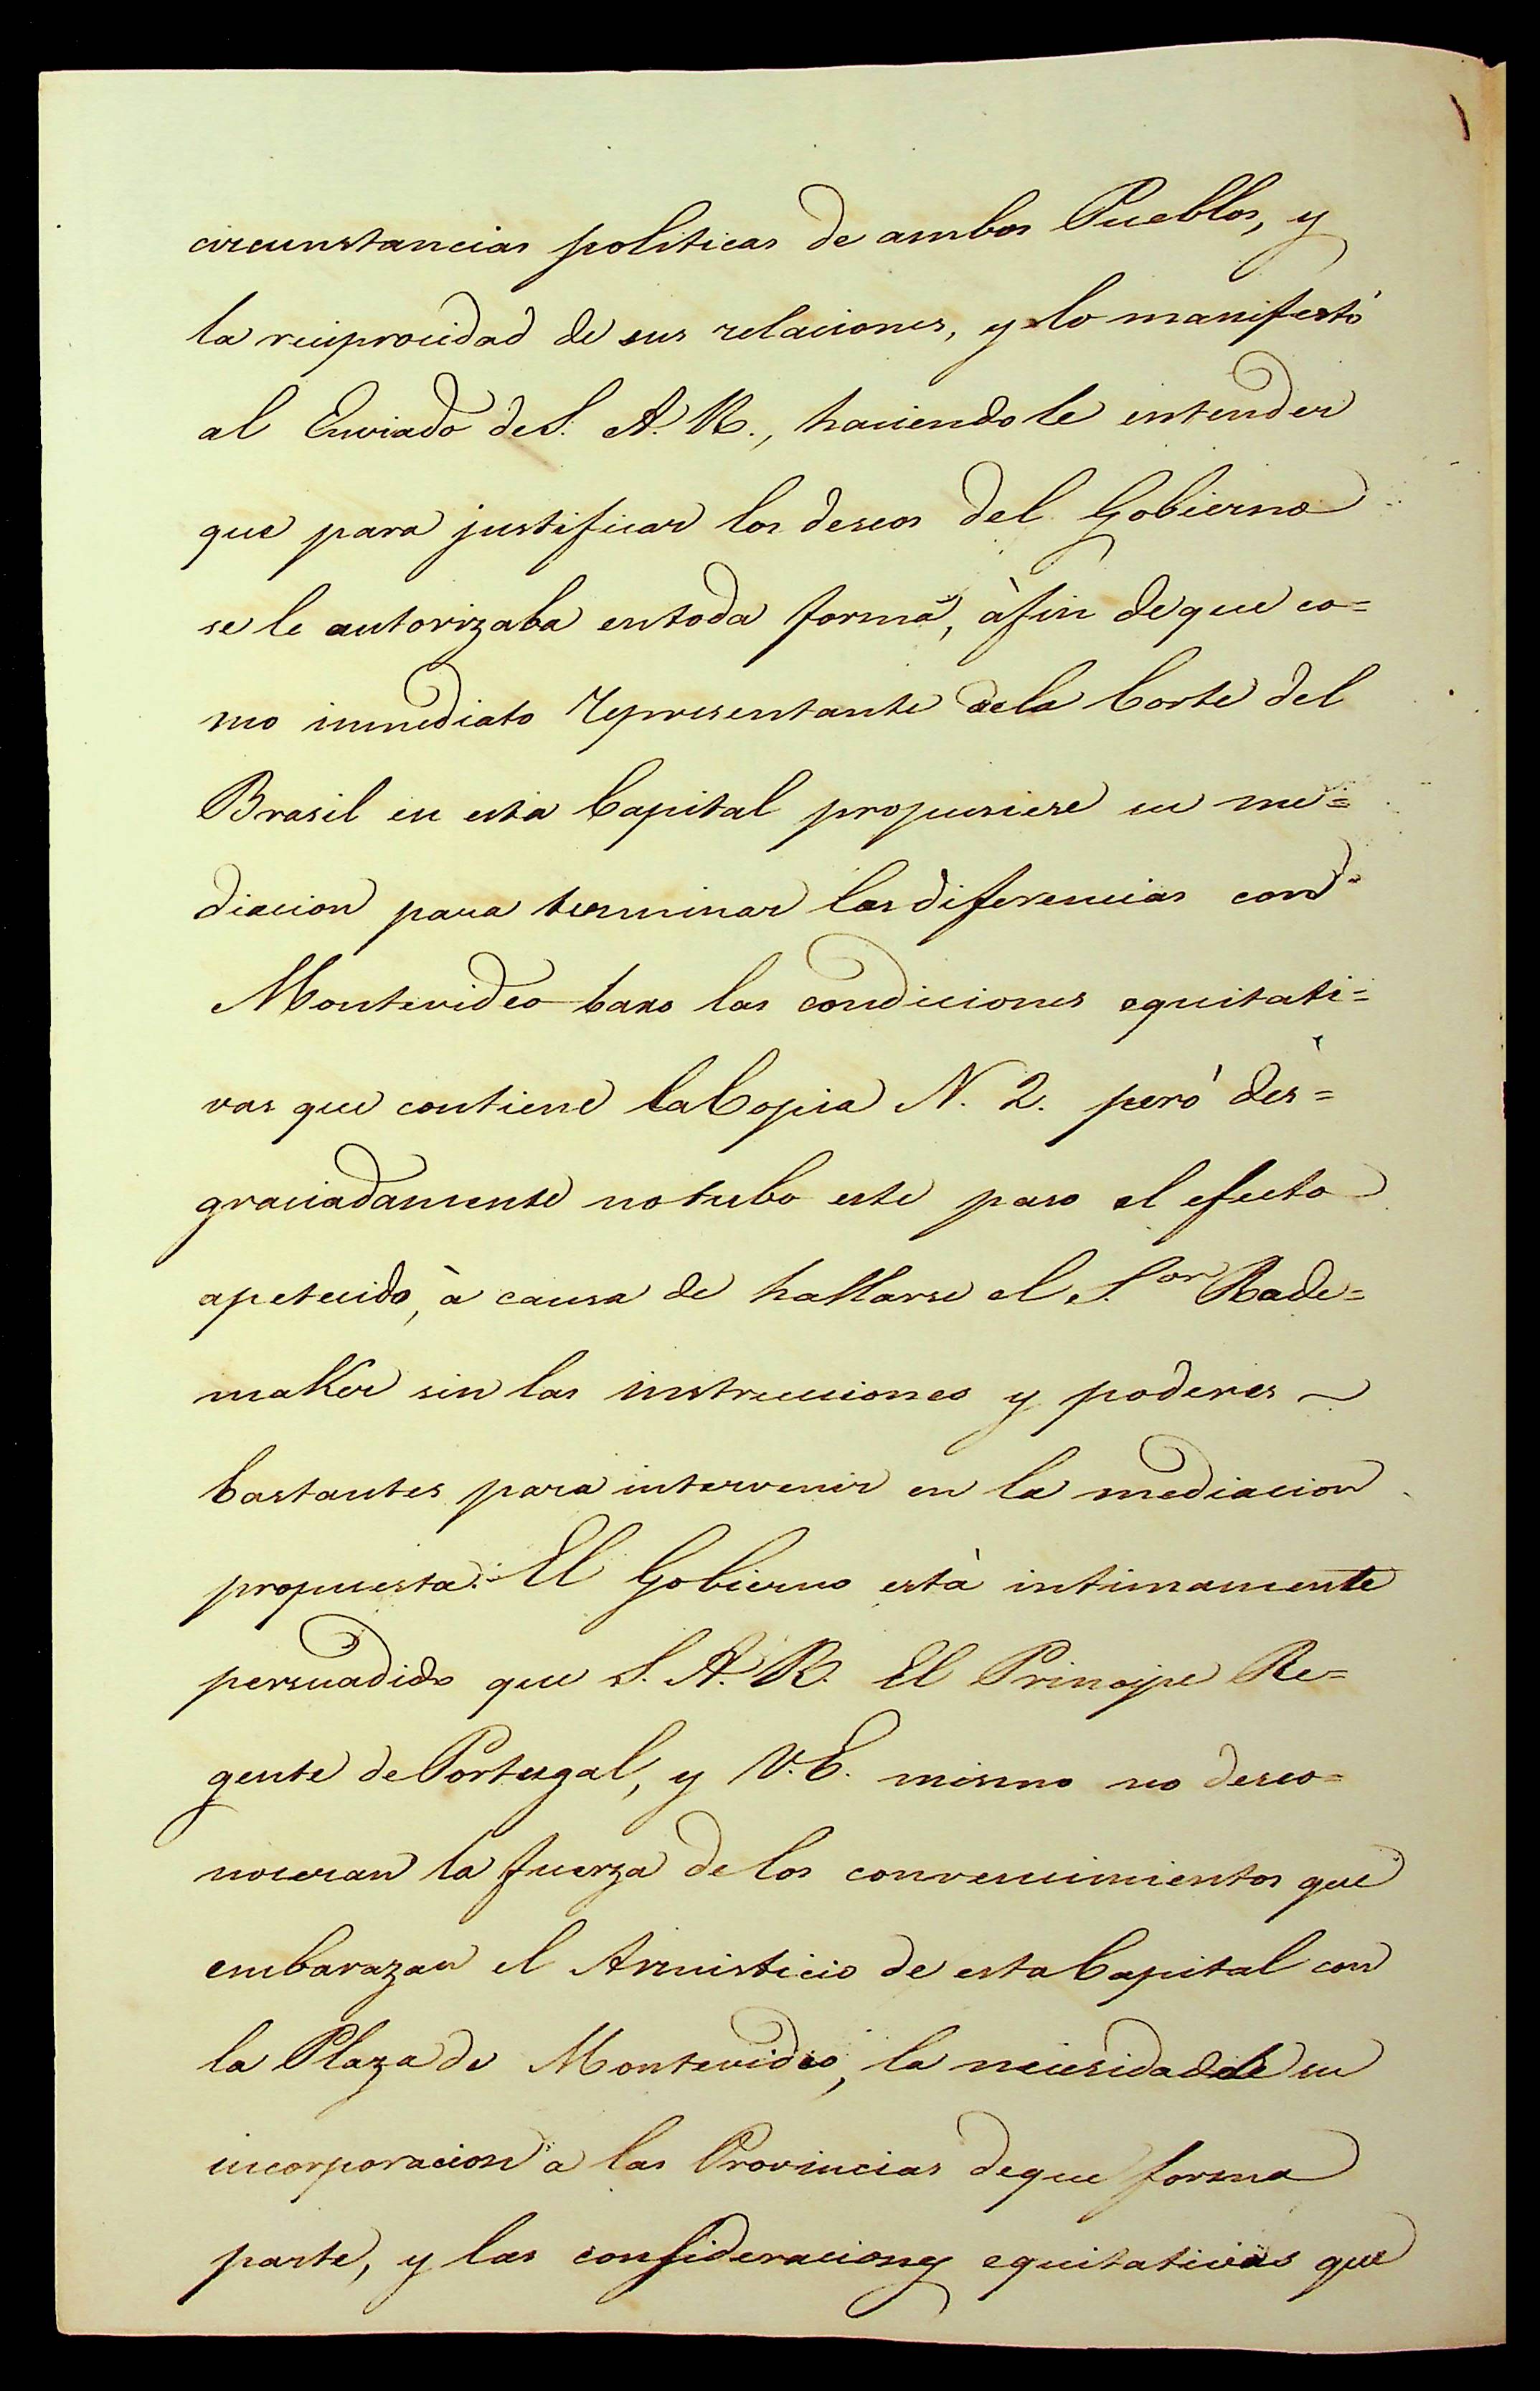 circunstancias politicas de ambos Pueblos, y
la reciprocidad de sus relaciones, y lo manifestó
al Enviado de S. A. R., haciendole entender
que para justificar los deseos del Gobierno
se le autorizaba en toda forma, à fin de que co=
mo inmediato representante de la Corte del
Brasil en esta Capital propusiese su me=
diacion para terminar las diferencias con
Montevideo baxo las condiciones equitati=
vas que contiene la Copia N. 2. peró des=
graciadamente no tubo este paso el efecto
apetecido, à causa de hallarse el S.or Rade=
maKer sin las instrucciones y poderes ~
bastantes para intervenir en la mediacion
propuesta. El Gobierno està intimamente
persuadido que S. A. R. El Principe Re=
gente de Portugal, y V. E. mismo no desco=
noceran la fuerza de los convencimientos que
embarazan el Armisticio de esta Capital con
la Plaza de Montevideo, la necesidad de su
incorporacion a las Provincias de que forma
parte, y las consideraciones equitativas que